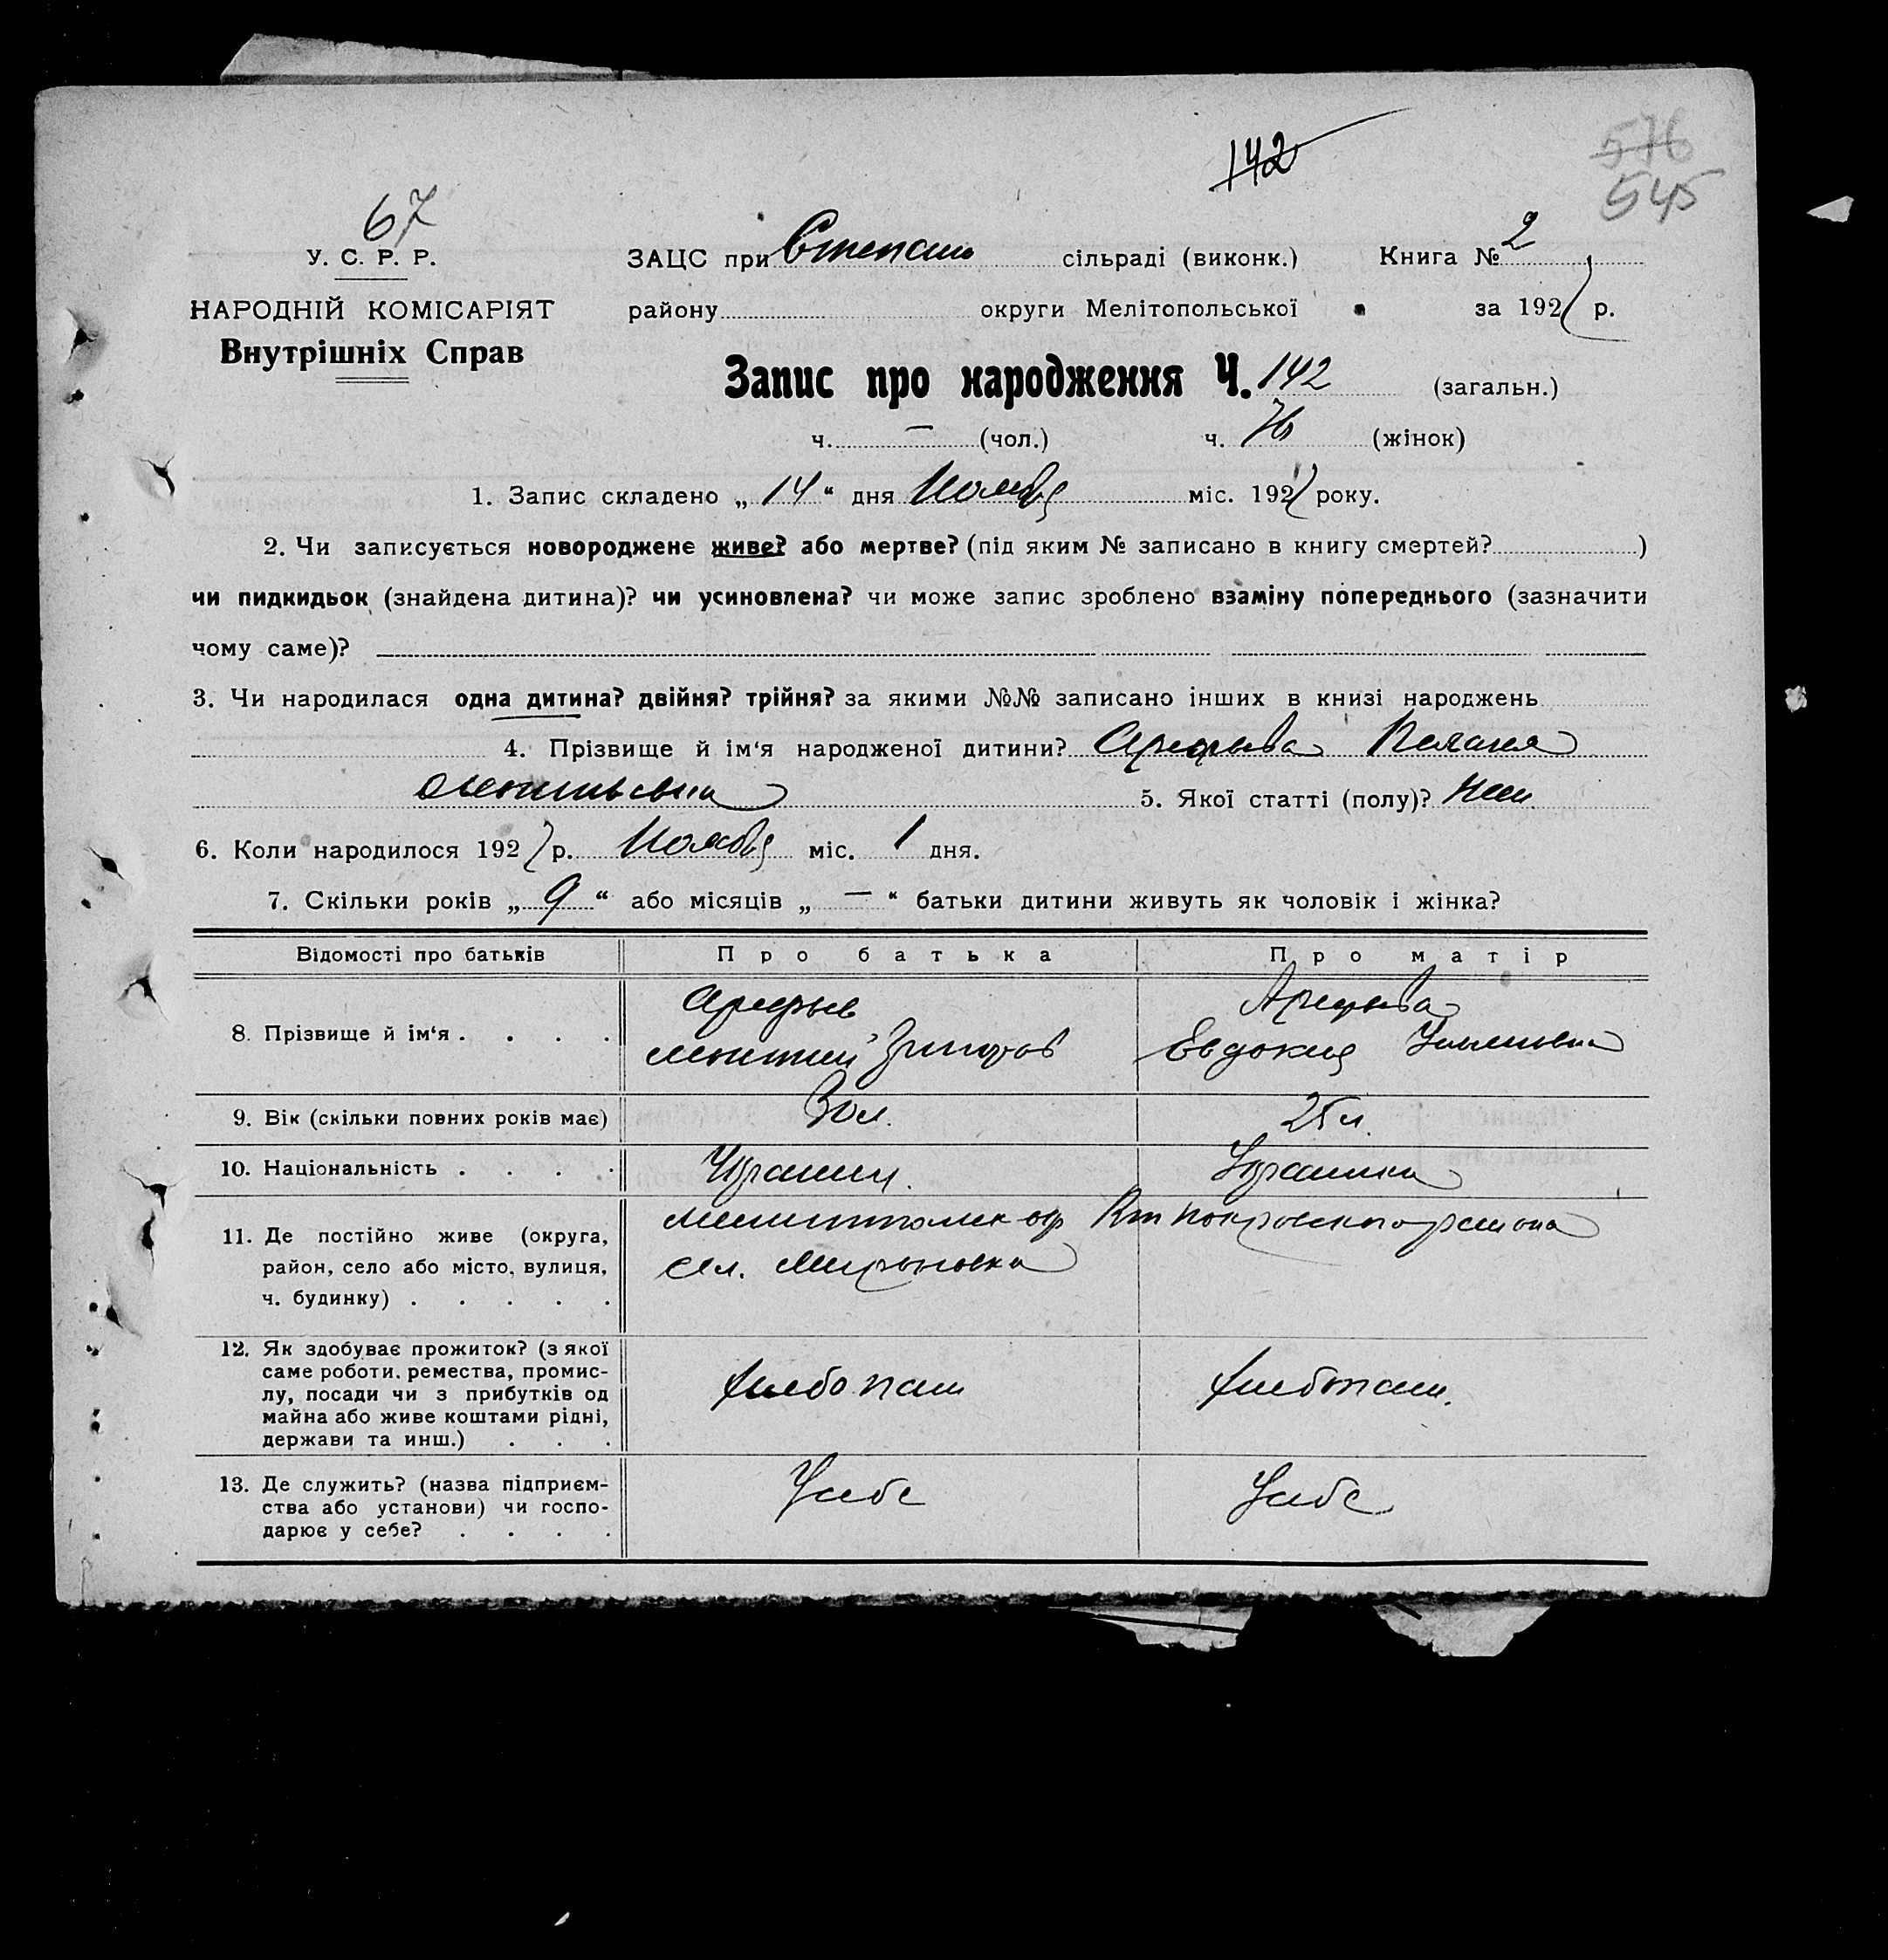 142
576
545
67
У. С. Р. Р.
НАРОДНІЙ КОМІСАРІЯТ
Внутрішніх Справ
ЗАЦС при Степан сільраді (виконк.) Книга № 2
району округи Мелітопольської за 1927 р.
Запис про народження Ч. 142 (загальн.)
ч. — (чол.) ч. 76 (жінок)
1. Запис складено „ 14 “ дня Ноября міс. 1927 року.
2. Чи записується новороджене живе? або мертве? (під яким № записано в книгу смертей? )
чи пидкидьок (знайдена дитина)? чи усиновлена? чи може запис зроблено взаміну попереднього (зазначити
чому саме)?
3. Чи народилася одна дитина? двійня? трійня? за якими №№ записано інших в книзі народжень
4. Прізвище й ім‘я народженої дитини? Арефьева Пелагея
5. Якої статті (полу)? Жен.
6. Коли народилося 1927 р. Ноября міс. 1 дня.
7. Скільки років „ 9 “ або місяців „ — “ батьки дитини живуть як чоловік і жінка?
Відомості про батьків Про батька Про матір
8. Прізвище й ім‘я . . . . Арефьев Арефьева
Григоров Евдокия
9. Вік (скільки повних років має) 30 л. 25 л.
10. Національність . . . . Украин. Украинка
11. Де постійно живе (округа, район, село або місто, вулиця, ч. будинку) . . . . . Мелитопольск окр Кирпокровского района
сел. Мироновка
12. Як здобуває прожиток? (з якої саме роботи. ремества, промислу, посади чи з прибутків од майна або живе коштами рідні, держави та инш.) . . . Хлебопаш Хлебопаш.
13. Де служить? (назва підприємства або установи) чи господарює у себе? . . . . У себе У себе